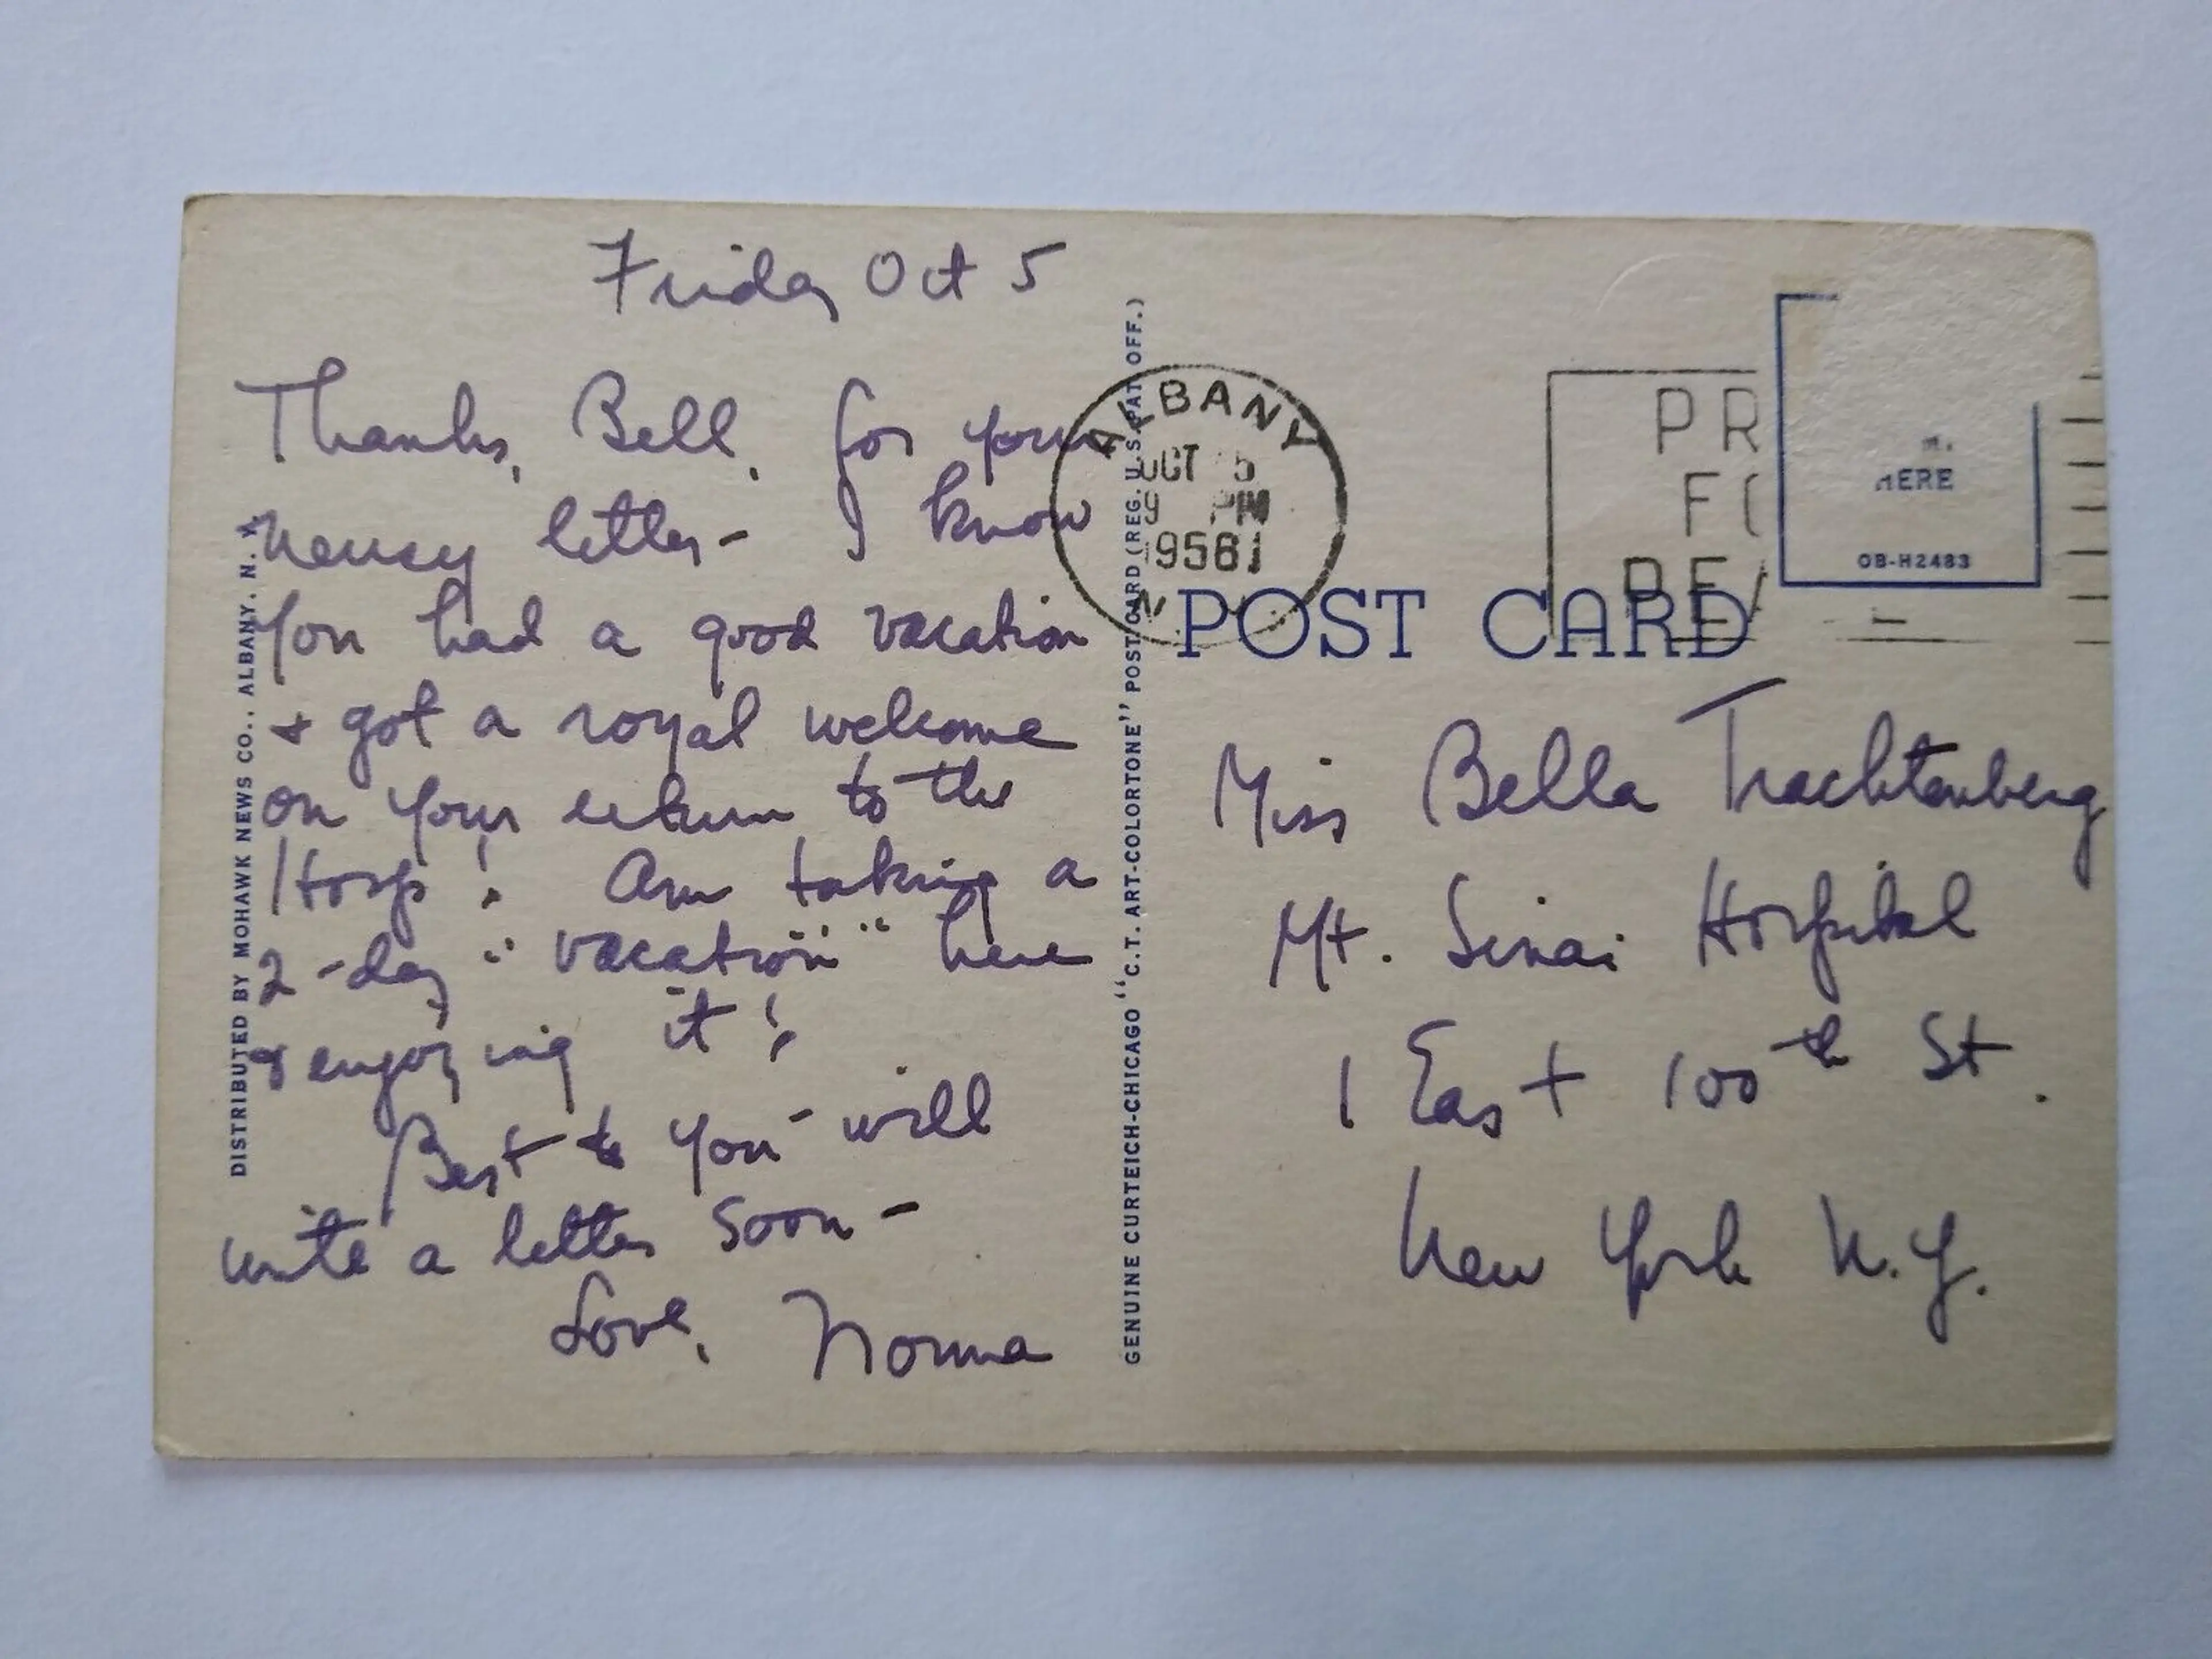 Friday Oct 5
Thanks, Bell, for your
newsy letter - I know
you had a good vacation
+ got a royal welcome
on your return to the
Hosp! Am taking a
2-day "vacation" here
& enjoying it!
Best to you - will
write a letter soon -
Love, Norma
DISTRIBUTED BY MOHAWK NEWS CO., ALBANY, N. Y.
GENUINE CURTEICH-CHICAGO "C.T. ART-COLORTONE" POST CARD (REG. U.S. PAT. OFF.)
ALBANY
OCT 5
9 PM
1956
N
PR
FO
HERE
OB-H2483
POST CARD
Miss Bella Trachtenberg
Mt. Sinai Hospital
1 East 100th St.
New York N.Y.